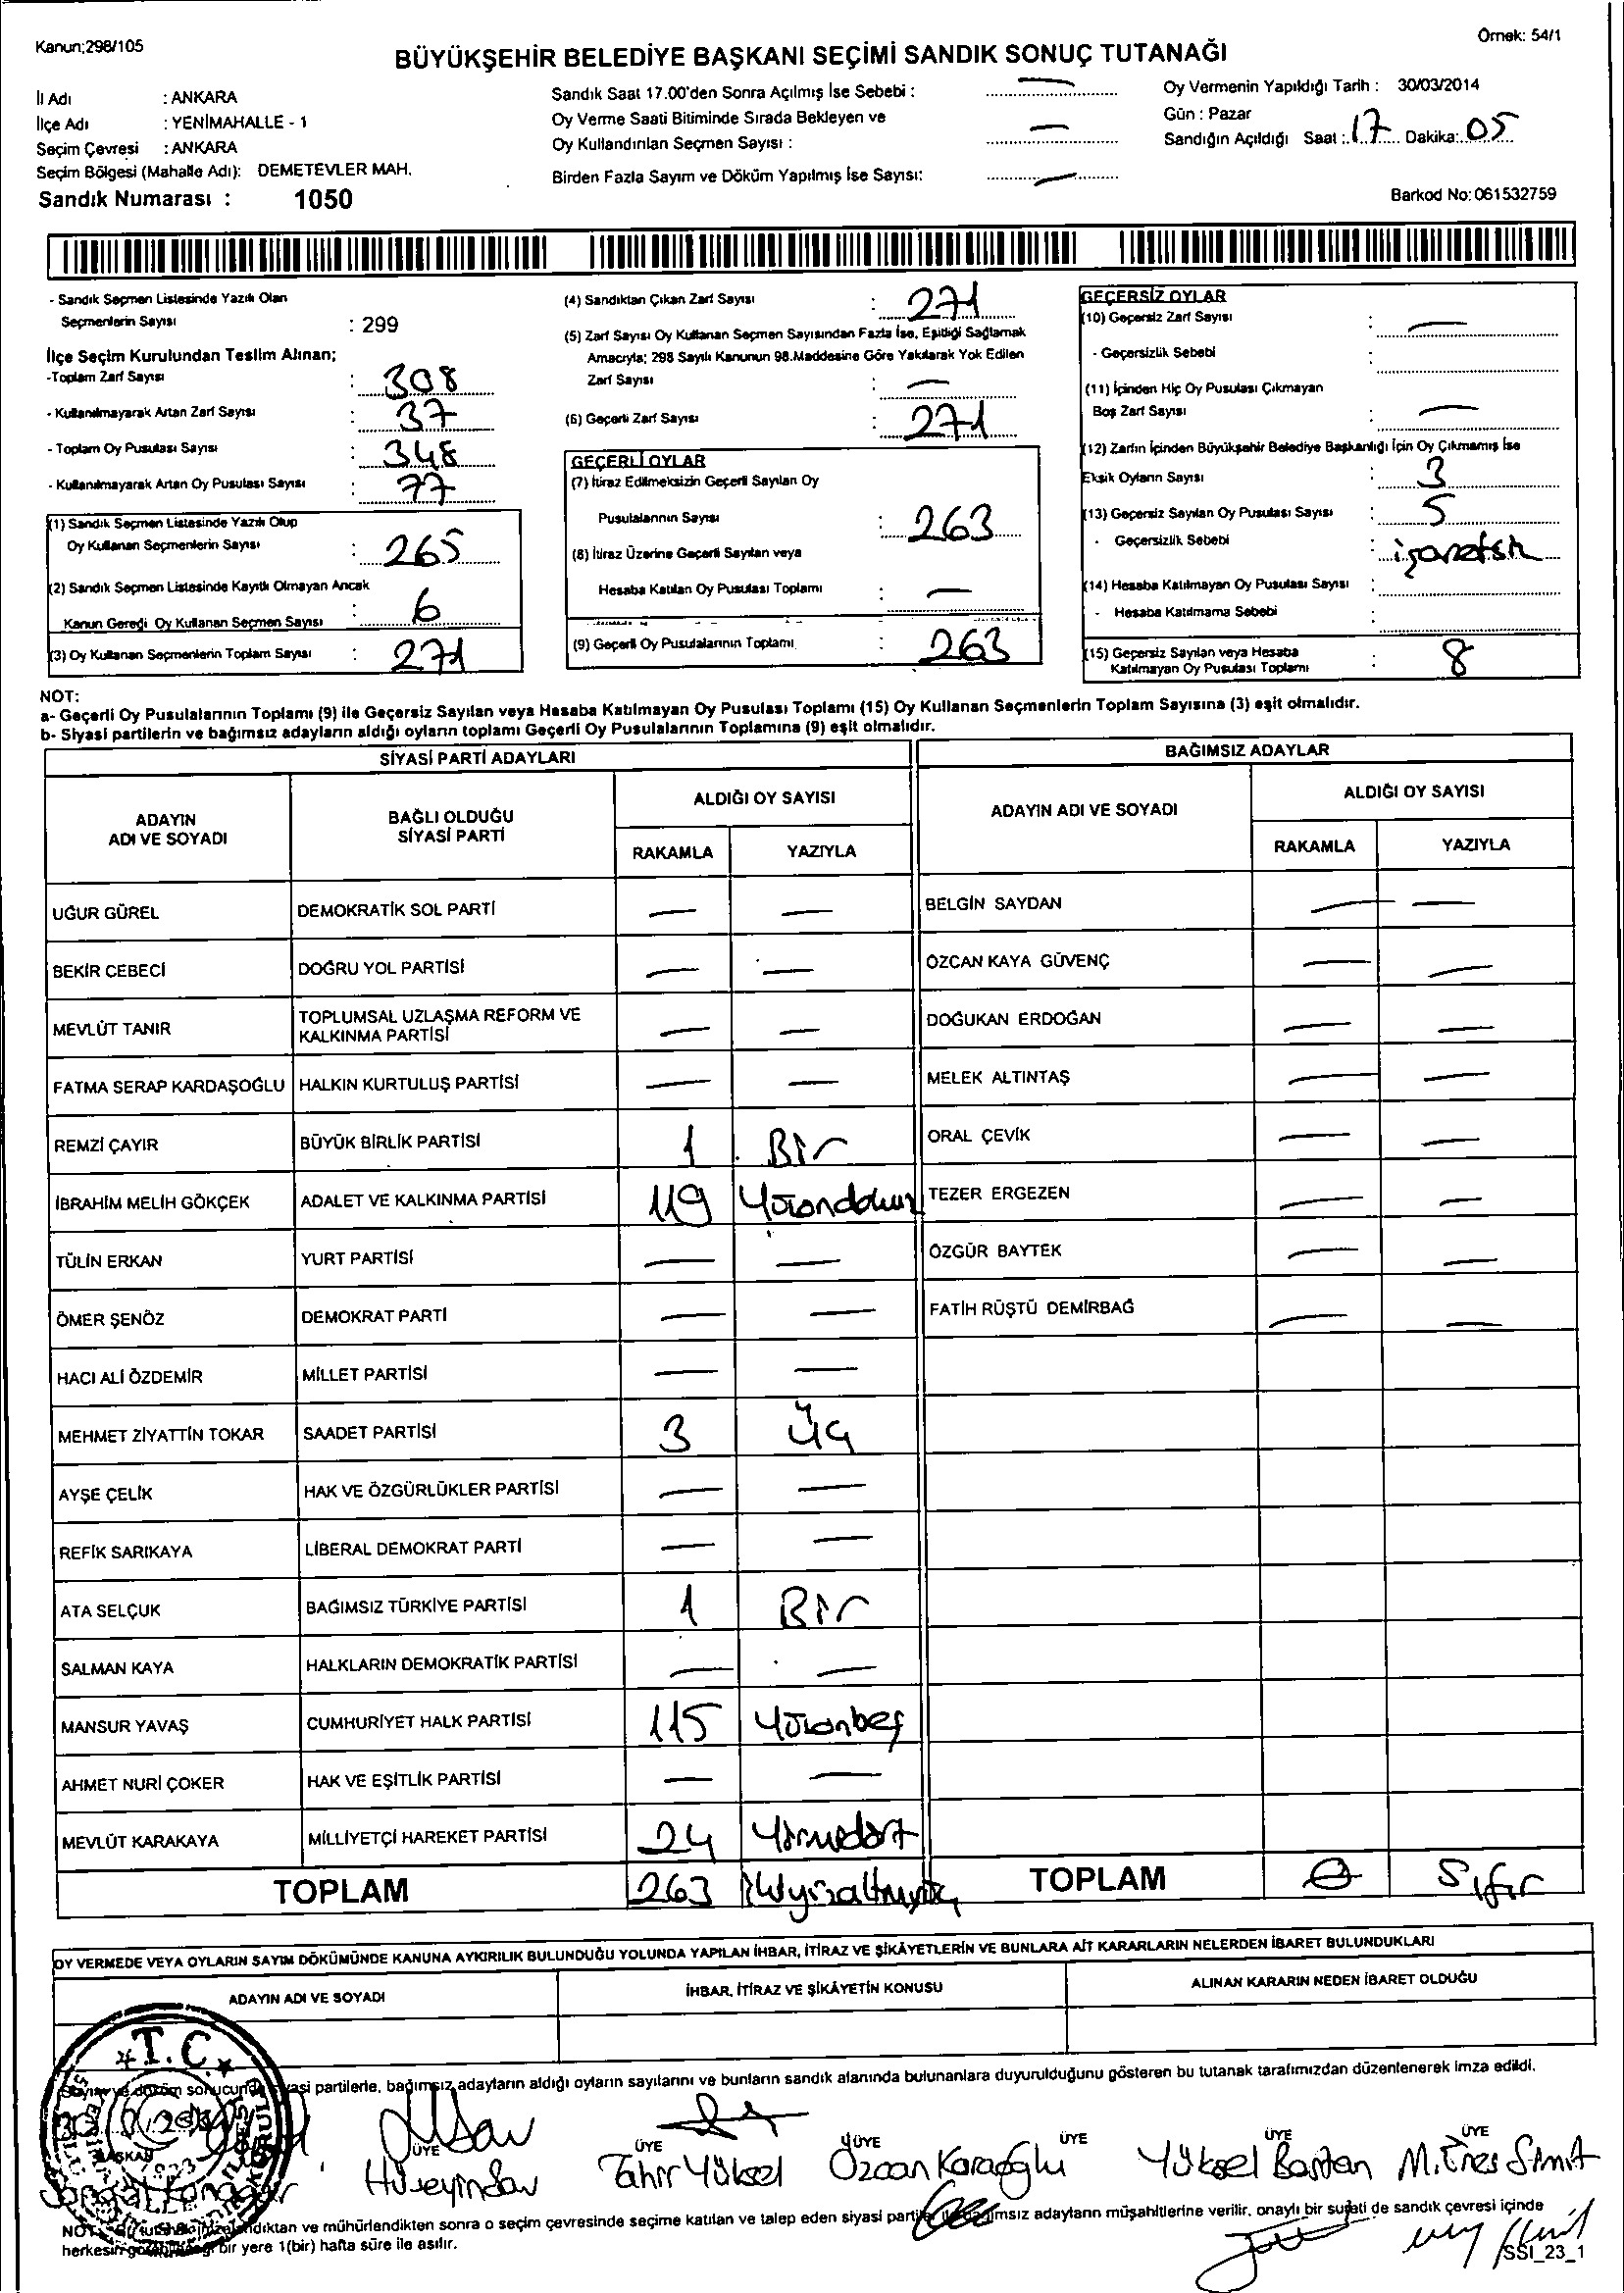 Kanun;298/105
Örnek: 54/1
BÜYÜKŞEHİR BELEDİYE BAŞKANI SEÇİMİ SANDIK SONUÇ TUTANAĞI
İl Adı : ANKARA
İlçe Adı : YENİMAHALLE - 1
Seçim Çevresi : ANKARA
Seçim Bölgesi (Mahalle Adı): DEMETEVLER MAH.
Sandık Numarası : 1050
Sandık Saat 17.00'den Sonra Açılmış İse Sebebi : —
Oy Verme Saati Bitiminde Sırada Bekleyen ve
Oy Kullandırılan Seçmen Sayısı : —
Birden Fazla Sayım ve Döküm Yapılmış İse Sayısı: —
Oy Vermenin Yapıldığı Tarih : 30/03/2014
Gün : Pazar
Sandığın Açıldığı Saat : 17 Dakika: 05
Barkod No: 061532759
- Sandık Seçmen Listesinde Yazılı Olan
Seçmenlerin Sayısı : 299
İlçe Seçim Kurulundan Teslim Alınan;
-Toplam Zarf Sayısı : 308
- Kullanılmayarak Artan Zarf Sayısı : 37
- Toplam Oy Pusulası Sayısı : 348
- Kullanılmayarak Artan Oy Pusulası Sayısı : 77
(1) Sandık Seçmen Listesinde Yazılı Olup
Oy Kullanan Seçmenlerin Sayısı : 265
(2) Sandık Seçmen Listesinde Kayıtlı Olmayan Ancak
Kanun Gereği Oy Kullanan Seçmen Sayısı : 6
(3) Oy Kullanan Seçmenlerin Toplam Sayısı : 271
(4) Sandıktan Çıkan Zarf Sayısı : 271
(5) Zarf Sayısı Oy Kullanan Seçmen Sayısından Fazla İse, Eşitliği Sağlamak
Amacıyla; 298 Sayılı Kanunun 98.Maddesine Göre Yakılarak Yok Edilen
Zarf Sayısı : —
(6) Geçerli Zarf Sayısı : 271
GEÇERLİ OYLAR
(7) İtiraz Edilmeksizin Geçerli Sayılan Oy
Pusulalarının Sayısı : 263
(8) İtiraz Üzerine Geçerli Sayılan veya
Hesaba Katılan Oy Pusulası Toplamı : —
(9) Geçerli Oy Pusulalarının Toplamı : 263
GEÇERSİZ OYLAR
(10) Geçersiz Zarf Sayısı : —
- Geçersizlik Sebebi :
(11) İçinden Hiç Oy Pusulası Çıkmayan
Boş Zarf Sayısı : —
(12) Zarfın İçinden Büyükşehir Belediye Başkanlığı İçin Oy Çıkmamış İse
Eksik Oyların Sayısı : 3
(13) Geçersiz Sayılan Oy Pusulası Sayısı : 5
- Geçersizlik Sebebi : işaretsiz
(14) Hesaba Katılmayan Oy Pusulası Sayısı :
- Hesaba Katılmama Sebebi :
(15) Geçersiz Sayılan veya Hesaba
Katılmayan Oy Pusulası Toplamı : 8
NOT:
a- Geçerli Oy Pusulalarının Toplamı (9) ile Geçersiz Sayılan veya Hesaba Katılmayan Oy Pusulası Toplamı (15) Oy Kullanan Seçmenlerin Toplam Sayısına (3) eşit olmalıdır.
b- Siyasi partilerin ve bağımsız adayların aldığı oyların toplamı Geçerli Oy Pusulalarının Toplamına (9) eşit olmalıdır.
SİYASİ PARTİ ADAYLARI
ADAYIN
ADI VE SOYADI
BAĞLI OLDUĞU
SİYASİ PARTİ
ALDIĞI OY SAYISI
RAKAMLA YAZIYLA
UĞUR GÜREL DEMOKRATİK SOL PARTİ — —
BEKİR CEBECİ DOĞRU YOL PARTİSİ — —
MEVLÜT TANIR TOPLUMSAL UZLAŞMA REFORM VE
KALKINMA PARTİSİ — —
FATMA SERAP KARDAŞOĞLU HALKIN KURTULUŞ PARTİSİ — —
REMZİ ÇAYIR BÜYÜK BİRLİK PARTİSİ 1 Bir
İBRAHİM MELİH GÖKÇEK ADALET VE KALKINMA PARTİSİ 119 Yüzondokuz
TÜLİN ERKAN YURT PARTİSİ — —
ÖMER ŞENÖZ DEMOKRAT PARTİ — —
HACI ALİ ÖZDEMİR MİLLET PARTİSİ — —
MEHMET ZİYATTİN TOKAR SAADET PARTİSİ 3 Üç
AYŞE ÇELİK HAK VE ÖZGÜRLÜKLER PARTİSİ — —
REFİK SARIKAYA LİBERAL DEMOKRAT PARTİ — —
ATA SELÇUK BAĞIMSIZ TÜRKİYE PARTİSİ 1 Bir
SALMAN KAYA HALKLARIN DEMOKRATİK PARTİSİ — —
MANSUR YAVAŞ CUMHURİYET HALK PARTİSİ 115 Yüzonbeş
AHMET NURİ ÇOKER HAK VE EŞİTLİK PARTİSİ — —
MEVLÜT KARAKAYA MİLLİYETÇİ HAREKET PARTİSİ 24 Yirmidört
TOPLAM 263 ikiyüzaltmışüç
BAĞIMSIZ ADAYLAR
ADAYIN ADI VE SOYADI
ALDIĞI OY SAYISI
RAKAMLA YAZIYLA
BELGİN SAYDAN — —
ÖZCAN KAYA GÜVENÇ — —
DOĞUKAN ERDOĞAN — —
MELEK ALTINTAŞ — —
ORAL ÇEVİK — —
TEZER ERGEZEN — —
ÖZGÜR BAYTEK — —
FATİH RÜŞTÜ DEMİRBAĞ — —
TOPLAM 0 Sıfır
OY VERMEDE VEYA OYLARIN SAYIM DÖKÜMÜNDE KANUNA AYKIRILIK BULUNDUĞU YOLUNDA YAPILAN İHBAR, İTİRAZ VE ŞİKÂYETLERİN VE BUNLARA AİT KARARLARIN NELERDEN İBARET BULUNDUKLARI
ADAYIN ADI VE SOYADI İHBAR, İTİRAZ VE ŞİKÂYETİN KONUSU ALINAN KARARIN NEDEN İBARET OLDUĞU
T.C.
Sayım ve döküm sonucunda siyasi partilerle, bağımsız adayların aldığı oyların sayılarını ve bunların sandık alanında bulunanlara duyurulduğunu gösteren bu tutanak tarafımızdan düzenlenerek imza edildi.
BAŞKAN ÜYE ÜYE ÜYE ÜYE ÜYE ÜYE
Hüseyin Sav Tahir Yüksel Özcan Karaoğlu Yüksel Bastan M. Enes
NOT: Bu tutanak imzalandıktan ve mühürlendikten sonra o seçim çevresinde seçime katılan ve talep eden siyasi partiler ile bağımsız adayların müşahitlerine verilir, onaylı bir sureti de sandık çevresi içinde
herkesin görebileceği bir yere 1(bir) hafta süre ile asılır.
SSI_23_1